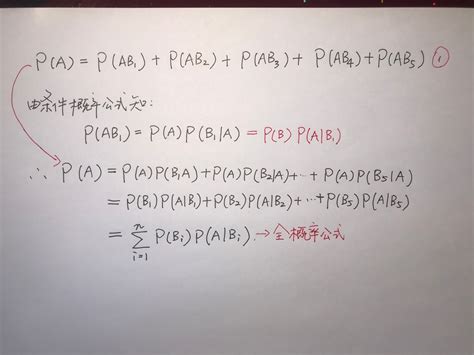 P(A) = P(AB₁) + P(AB₂) + P(AB₃) + P(AB₄) + P(AB₅) ①
由条件概率公式知:
P(AB₁) = P(A) P(B₁|A) = P(B) P(A|B₁)
∴ P(A) = P(A)P(B₁A) + P(A)P(B₂|A) + ··· + P(A)P(B₅|A)
= P(B₁)P(A|B₁) + P(B₂)P(A|B₂) + ··· + P(B₅)P(A|B₅)
= ∑ⁿᵢ₌₁ P(Bᵢ)P(A|Bᵢ) → 全概率公式